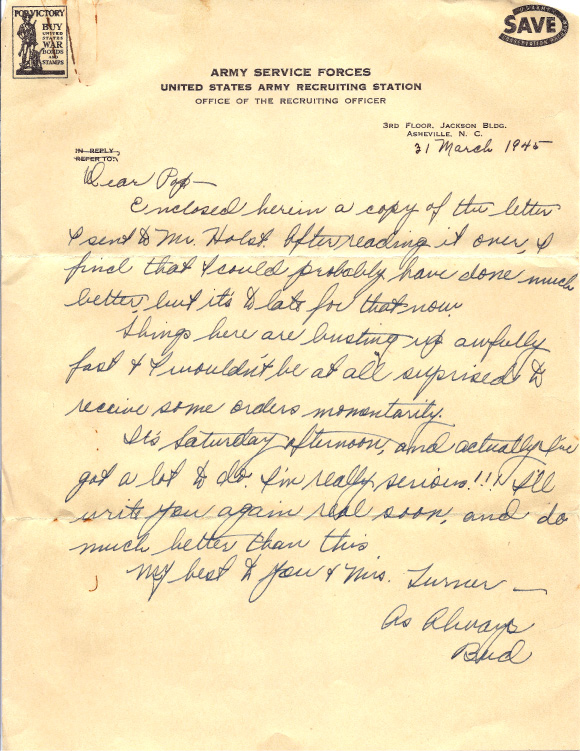 FOR VICTORY
BUY
UNITED
STATES
WAR
BONDS
AND
STAMPS
SAVE
ARMY SERVICE FORCES
UNITED STATES ARMY RECRUITING STATION
OFFICE OF THE RECRUITING OFFICER
3RD FLOOR, JACKSON BLDG.
ASHEVILLE, N. C.
31 March 1945
IN REPLY
REFER TO:
Dear Pop—
Enclosed herein a copy of the letter
I sent to Mr. Holst. After reading it over, I
find that I could probably have done much
better, but its to late for that now.
Things here are busting up awfully
fast & I wouldn't be at all surprised to
receive some orders momentarily.
It's Saturday afternoon, and actually I've
got a lot to do. I'm really serious!!! I'll
write you again real soon, and do
much better than this
My best to you & Mrs. Turner —
As Always
Bud